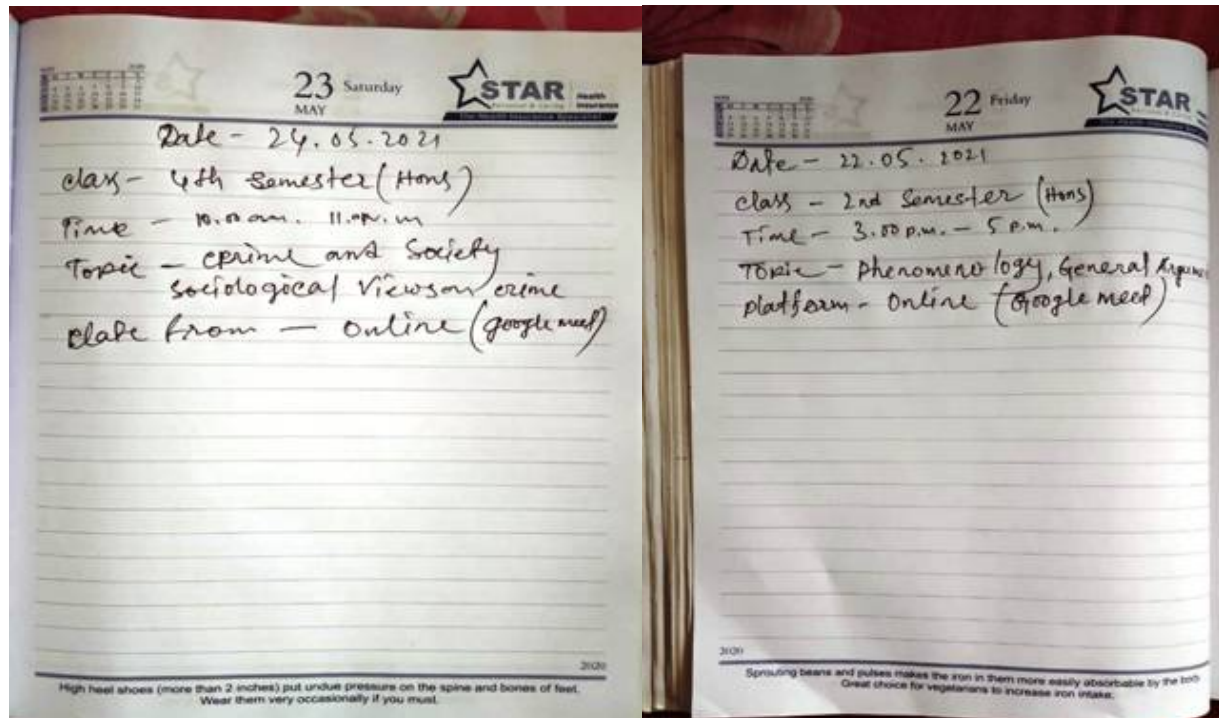 23 Saturday
MAY
STAR Health Insurance
Personal & Caring
The Health Insurance Specialist
Date - 24.05.2021
class - 4th Semester (Hons)
Time - 10.00 am. 11.00 p.m
Topic - crime and Society
sociological Views on crime
Plate from - Online (google meet)
2020
High heel shoes (more than 2 inches) put undue pressure on the spine and bones of feet.
Wear them very occasionally if you must.
22 Friday
MAY
STAR
Date - 22.05.2021
Class - 2nd Semester (Hons)
Time - 3.00 p.m. - 5 p.m.
Topic - Phenomenology, General
Platform - Online (Google meet)
2020
Sprouting beans and pulses makes the iron in them more easily absorbable by the body.
Great choice for vegetarians to increase iron intake.